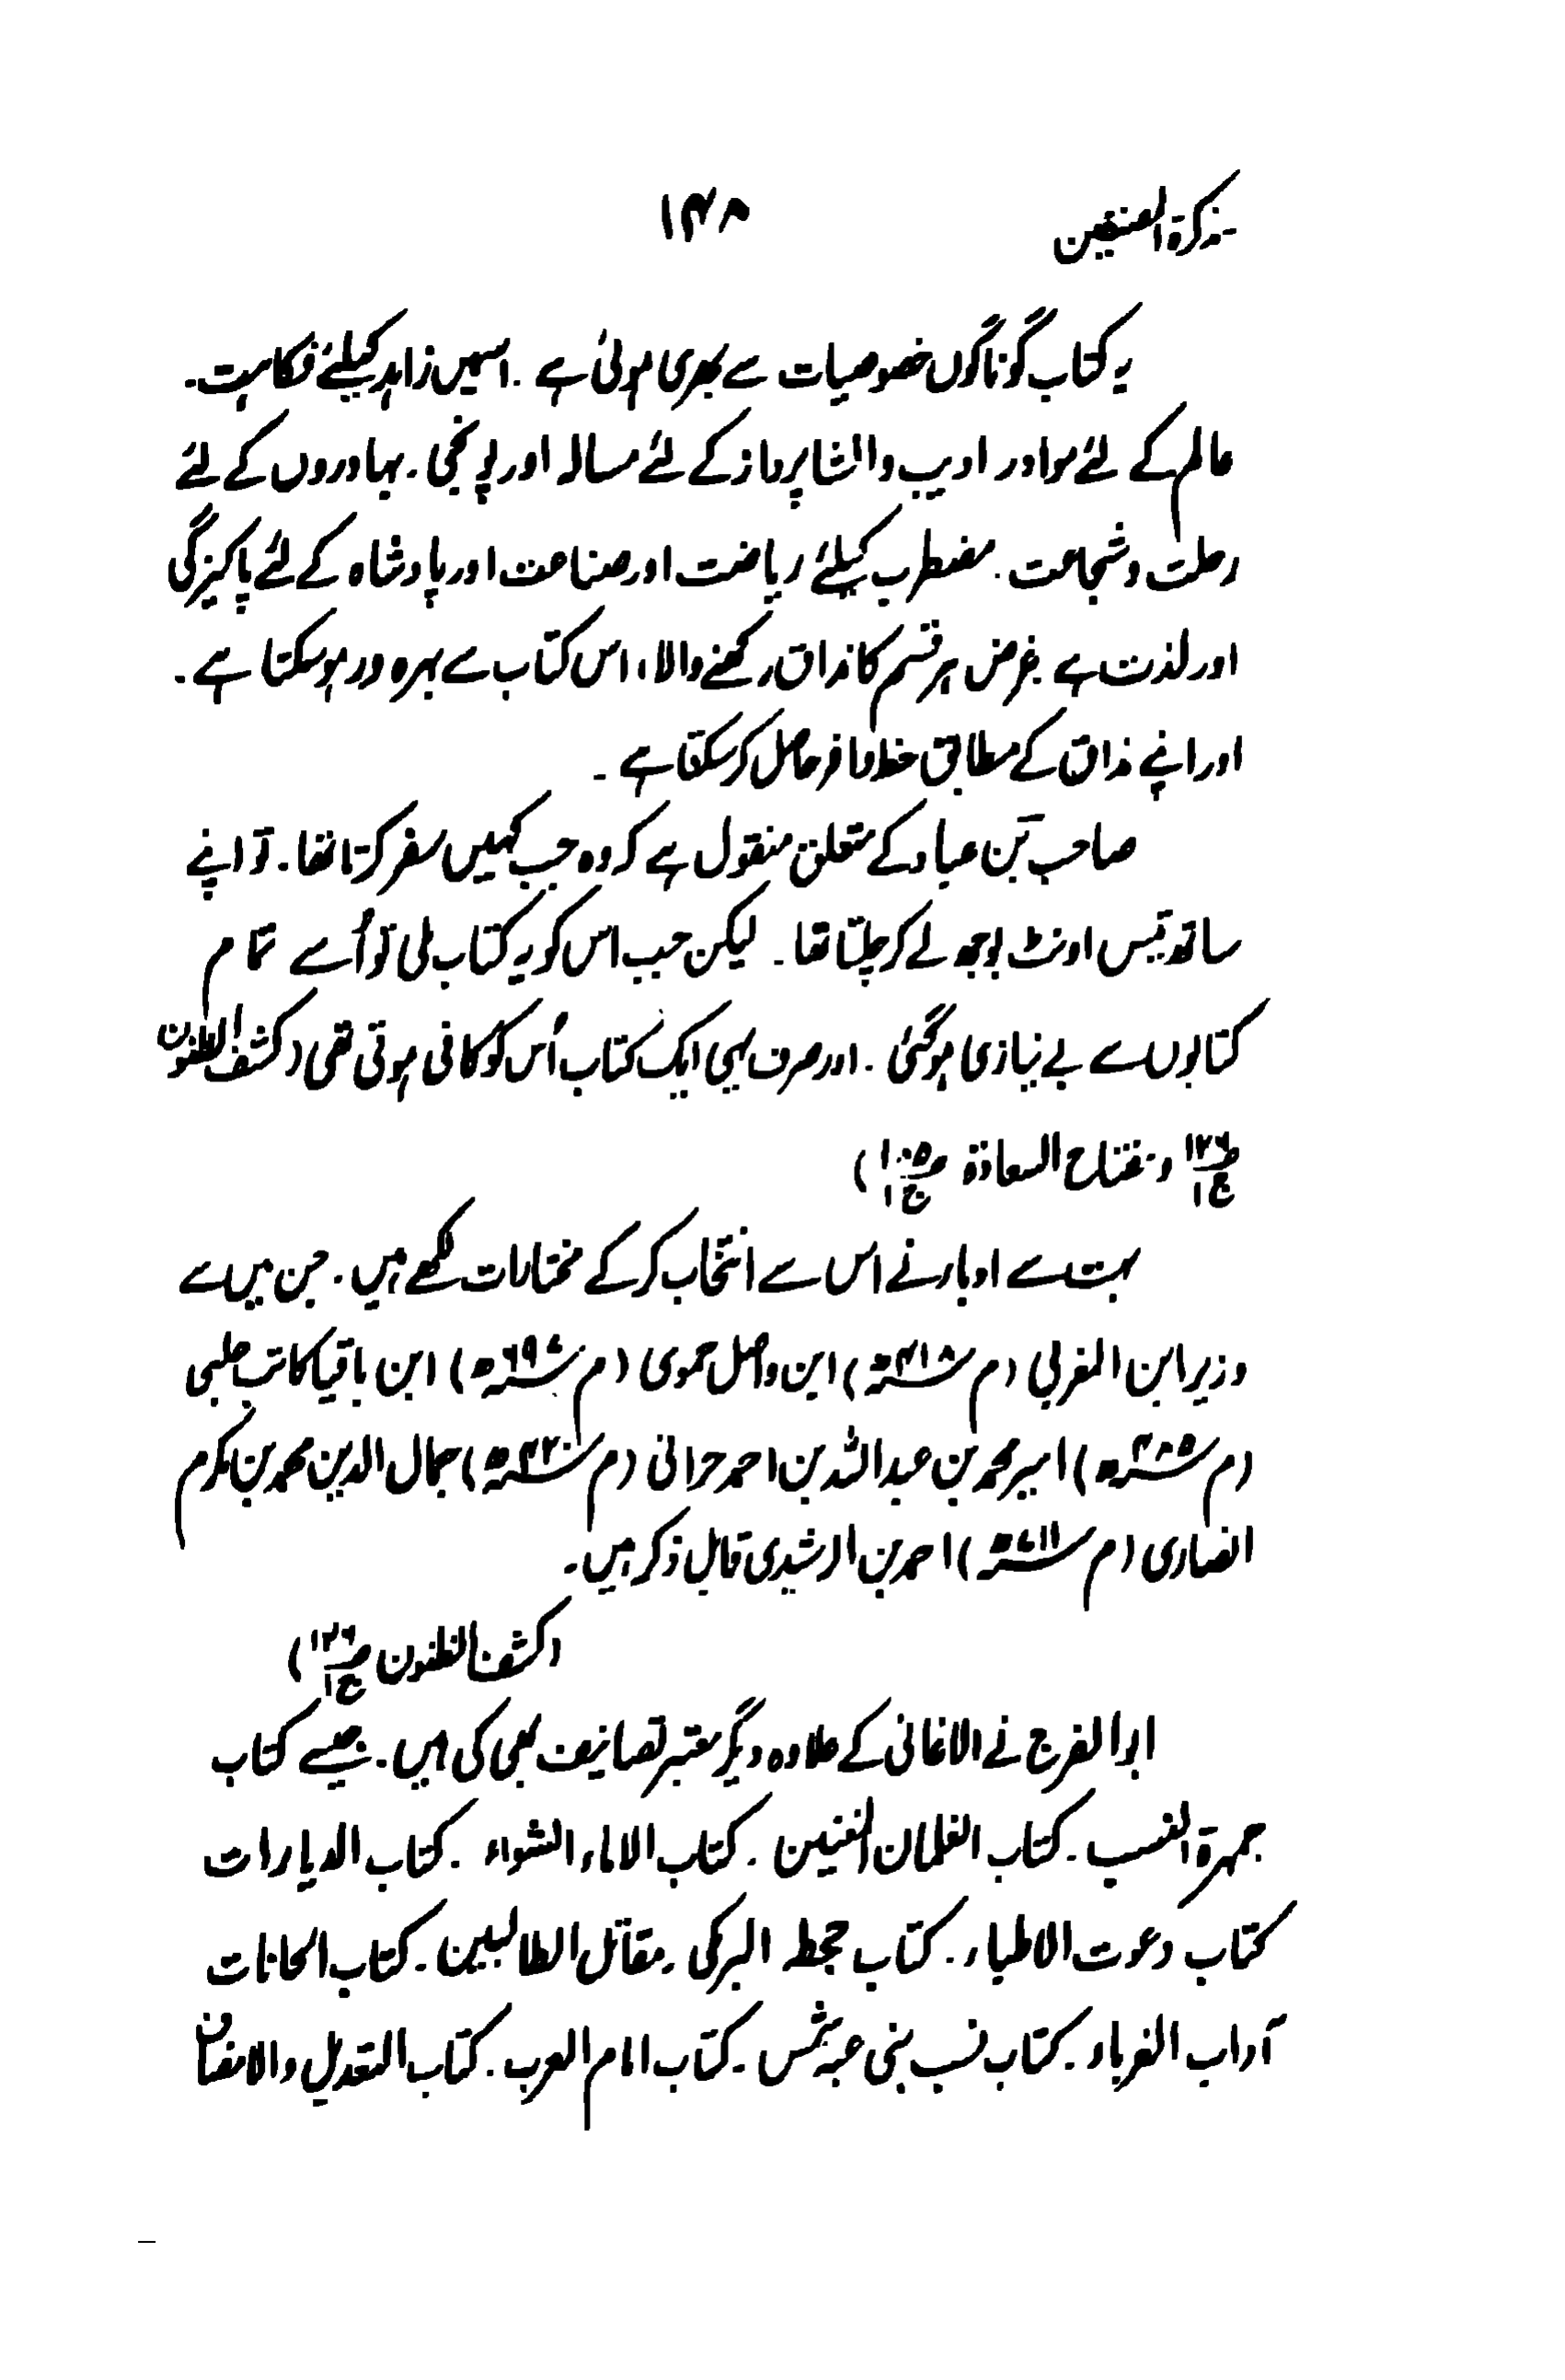 تذکرۃ المصنفین ۱۴۸
یہ کتاب گوناگوں خصوصیات سے بھری ہوئی ہے ۔ اسمیں زاہد کیلئے فکاہت۔
عالم کے لئے مواد ور ادیب وانشا پرداز کے لئے مسالہ اور پونجی ۔ بہادروں کے لئے
رحلت و شجاعت ۔ مضطرب کیلئے ریاضت اور صناعت اور پادشاہ کے لئے پاکیزگی
اور لذت ہے ۔ غرض ہر قسم کا مذاق رکھنے والا، اس کتاب سے بہرہ ور ہوسکتا ہے ۔
اور اپنے مذاق کے مطابق حظ وافر حاصل کرسکتا ہے ۔
صاحب بن عباد کے متعلق منقول ہے کہ وہ جب کہیں سفر کرتا تھا ۔ تو اپنے
ساتھ تیس اونٹ بوجھ لے کر چلتا تھا ۔ لیکن جب اس کو یہ کتاب ملی تو اُسے تمام
کتابوں سے بے نیازی ہوگئی ۔ اور صرف یہی ایک کتاب اُس کو کافی ہوتی تھی (کشف الظنون
ص۱۲۹ ج۱ و مفتاح السعادۃ ج۱)
بہت سے ادباء نے اس سے انتخاب کرکے مختارات لکھے ہیں ۔ جن میں سے
وزیر ابن المغربی (م ۴۱۸ھ) ابن واصل حموی (م ۶۹۷ھ) ابن باقیا کاتب حلبی
(م ۴۸۵ھ) امیر محمد بن عبداللہ بن احمد حرانی (م ۴۲۰ھ) جمال الدین محمد بن مکرم
انصاری (م ۷۱۱ھ) احمد بن الرشیدی قابل ذکر ہیں ۔
(کشف الظنون ص۱۲۹ ج۱)
ابوالفرج نے الاغانی کے علاوہ دیگر معتبر تصانیف بھی کی ہیں ۔ جیسے کتاب
جمہرۃ النسب ۔ کتاب الغلمان المغنیین ۔ کتاب الاماء الشواء ۔ کتاب الدیارات
کتاب دعوت الاطباء ۔ کتاب جحظ البرمکی ۔ مقاتل الطالبیین ۔ کتاب الحانات
آداب الغرباء ۔ کتاب نسب بنی عبد شمس ۔ کتاب ایام العرب ۔ کتاب التعدیل والانتصاف